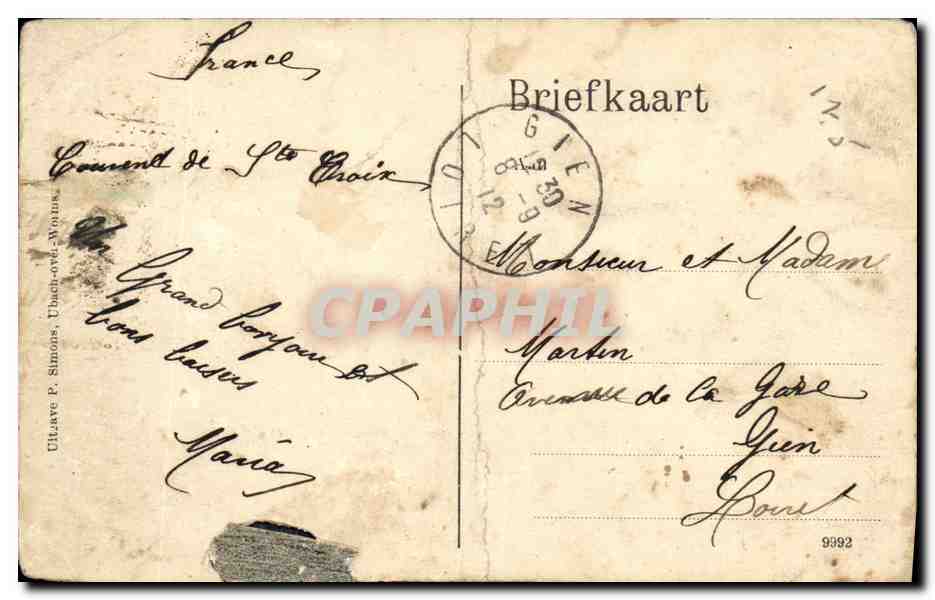 France
Briefkaart
Couvent de Ste Croix
Un Grand bonjour et
bons baisers
Maria
Monsieur et Madame
Martin
avenue de la Gare
Gien
Loiret
GIEN
LOIRET
8 15 30
12 -9
Uitgave P. Simons, Ubach-over-Worms.
9992
CPAPHIL